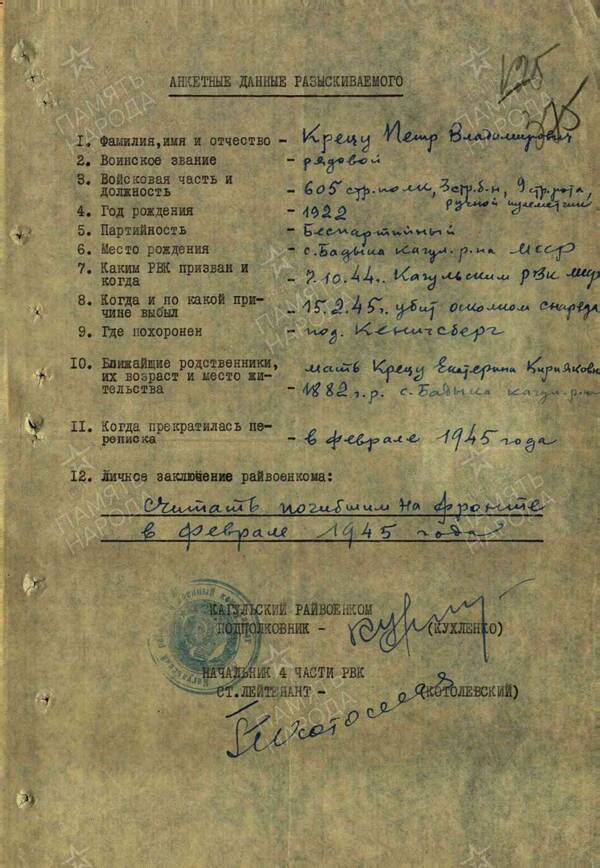 125
375
АНКЕТНЫЕ ДАННЫЕ РАЗЫСКИВАЕМОГО
1. Фамилия,имя и отчество - Крецу Петр Владимирович
2. Воинское звание - рядовой
3. Войсковая часть и
должность - 605 стр.полк, 3 стр.б-н, 9 стр.рота,
ручной пулеметчик
4. Год рождения - 1922
5. Партийность - Беспартийный
6. Место рождения - с.Бадыка кагул. р-на МССР
7. Каким РВК призван и
когда - 7.10.44. Кагульским РВК МССР
8. Когда и по какой при-
чине выбыл - 15.2.45г. убит осколком снаряда
9. Где похоронен - под. Кенигсберг
10. Ближайшие родственники,
их возраст и место жи-
тельства - мать Крецу Екатерина Кирияковна
1882 г.р. с.Бадыка кагул. р-на
11. Когда прекратилась пе-
реписка - в феврале 1945 года
12. Личное заключение райвоенкома:
считать погибшим на фронте
в феврале 1945 года
КАГУЛЬСКИЙ РАЙВОЕНКОМ
ПОДПОЛКОВНИК - (КУХЛЕНКО)
НАЧАЛЬНИК 4 ЧАСТИ РВК
СТ.ЛЕЙТЕНАНТ - (КОТОЛЕВСКИЙ)
ПАМЯТЬ НАРОДА